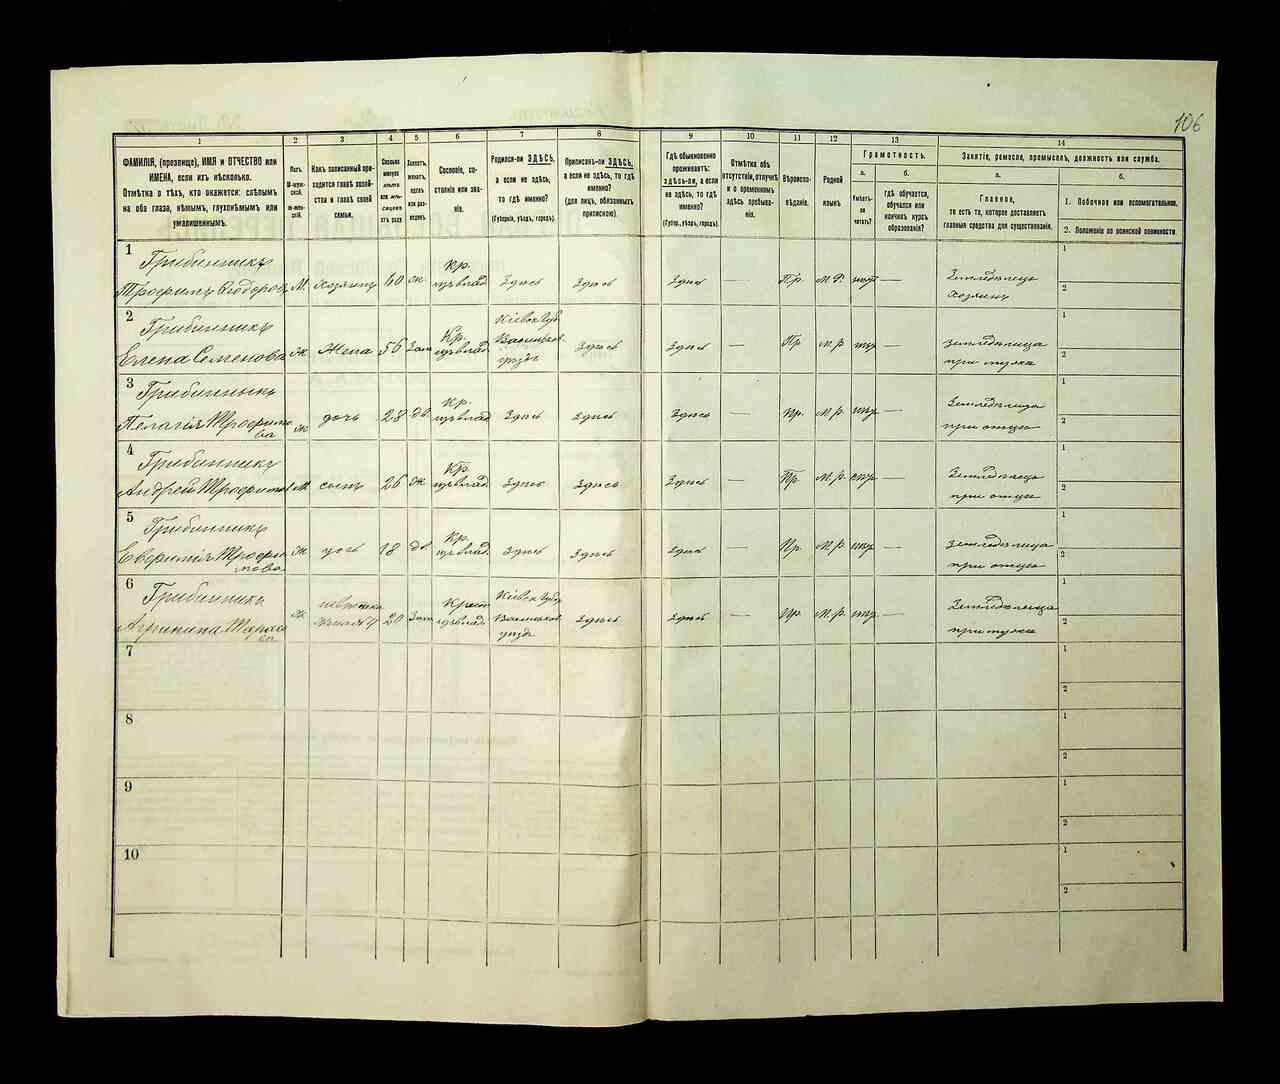 106
1
2
3
4
5
6
7
8
9
10
11
12
13
14
ФАМИЛІЯ, (прозвище), ИМЯ и ОТЧЕСТВО или
ИМЕНА, если ихъ нѣсколько.
Отмѣтка о тѣхъ, кто окажется: слѣпымъ
на оба глаза, нѣмымъ, глухонѣмымъ или
умалишеннымъ.
Полъ.
М-муж-
ской.
Ж-жен-
скій.
Какъ записанный при-
ходится главѣ хозяй-
ства и главѣ своей
семьи.
Сколько
минуло
лѣтъ
или мѣ-
сяцевъ
отъ роду
Холостъ,
женатъ,
вдовъ
или раз-
веденъ.
Сословіе, со-
стояніе или зва-
ніе.
Родился-ли ЗДѢСЬ,
а если не здѣсь,
то гдѣ именно?
(Губернія, уѣздъ, городъ).
Приписанъ-ли ЗДѢСЬ,
а если не здѣсь, то гдѣ
именно?
(для лицъ, обязанныхъ
припискою).
Гдѣ обыкновенно
проживаетъ:
здѣсь-ли, а если
не здѣсь, то гдѣ
именно?
(Губер., уѣздъ, городъ).
Отмѣтка объ
отсутствіи, отлучкѣ
и о временномъ
здѣсь пребыва-
ніи.
Вѣроиспо-
вѣданіе.
Родной
языкъ.
Грамотность.
а.
Умѣетъ-
ли
читать?
б.
Гдѣ обучается,
обучался или
кончилъ курсъ
образованія?
Занятіе, ремесло, промыселъ, должность или служба.
а.
Главное,
то есть то, которое доставляетъ
главныя средства для существованія.
б.
1. Побочное или вспомогательное.
2. Положеніе по воинской повинности.
1
Грибинникъ
Трофимъ Ѳедоровъ М. хозяинъ 60 ж Кр. изъ влад здѣсь здѣсь здѣсь — Пр. М.Р. нѣт — Земледѣлецъ
хозяинъ
1
2
2
Грибинникъ
Елена Семенова ж жена 56 Зам Кр. изъ влад Кіевск Губ Васильк. уѣздъ здѣсь здѣсь — Пр М.Р. нѣт — Земледѣлица
при мужѣ
1
2
3
Пелагія Трофимова ж дочь 28 дв. Кр. изъ влад здѣсь здѣсь здѣсь — Пр. М.Р. нѣт — Земледѣлица
при отцѣ
1
2
4
Грибинникъ
Андрей Трофимовъ М. сынъ 26 ж Кр. изъ влад здѣсь здѣсь здѣсь — Пр. М.Р. — Земледѣлецъ
при отцѣ
1
2
5
Грибинникъ
Евфимія Трофимова ж дочь 18 дв Кр. изъ влад. здѣсь здѣсь здѣсь — Пр. М.Р. нѣт — Земледѣлица
при отцѣ
1
2
6
Грибинникъ
Агрипина Тарасова ж невѣстка 20 Зам Крест изъ влад Кіевск Губер Васильков уѣздъ здѣсь здѣсь — Пр. М.Р. нѣт — Земледѣлица
при мужѣ
1
2
7
1
2
8
1
2
9
1
2
10
1
2